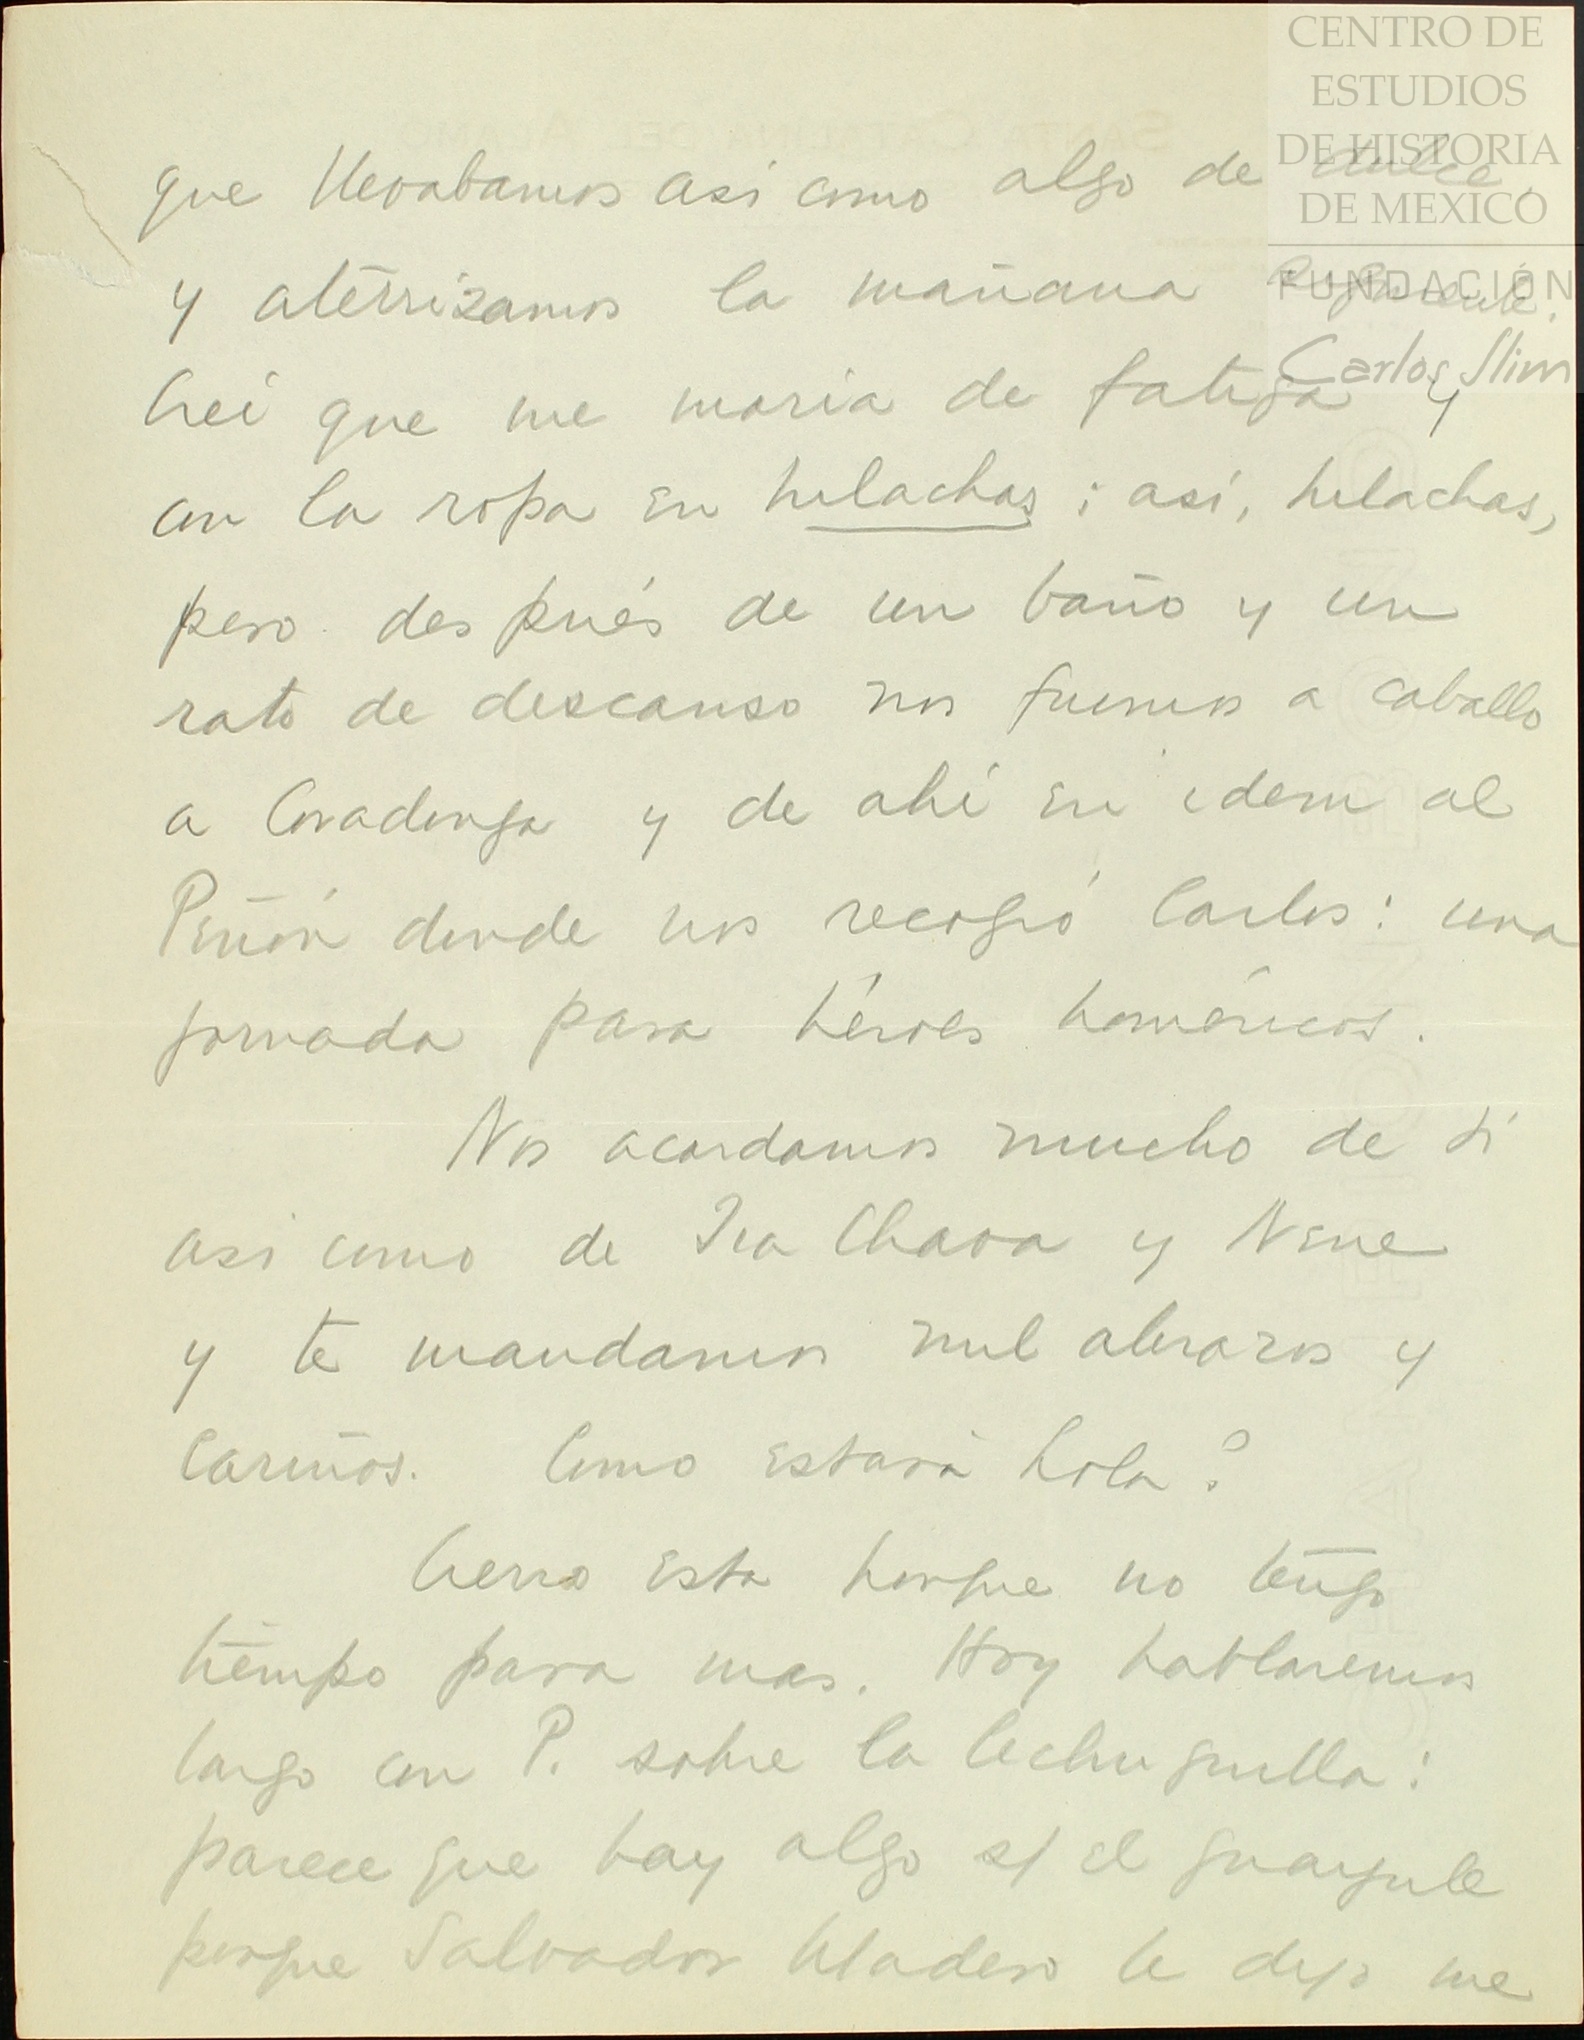 CENTRO DE
ESTUDIOS
DE HISTORIA
DE MEXICO
FUNDACIÓN
Carlos Slim
que llevabamos asi como algo de dulce
y aterrizamos la mañana siguiente.
Creí que me moria de fatiga y
con la ropa en hilachas; así, hilachas,
pero después de un baño y un
rato de descanso nos fuimos a caballo
a Covadonga y de ahí en idem al
Piñón donde nos recogió Carlos: una
jornada para héroes homéricos.
Nos acordamos mucho de tí
asi como de Tia Chava y Nene
y te mandamos mil abrazos y
cariños. Como estará Lola?
Cierro esta porque no tengo
tiempo para mas. Hoy hablaremos
largo con P. sobre la lechuguilla:
parece que hay algo s/ el guayule
porque Salvador Madero le dijo me